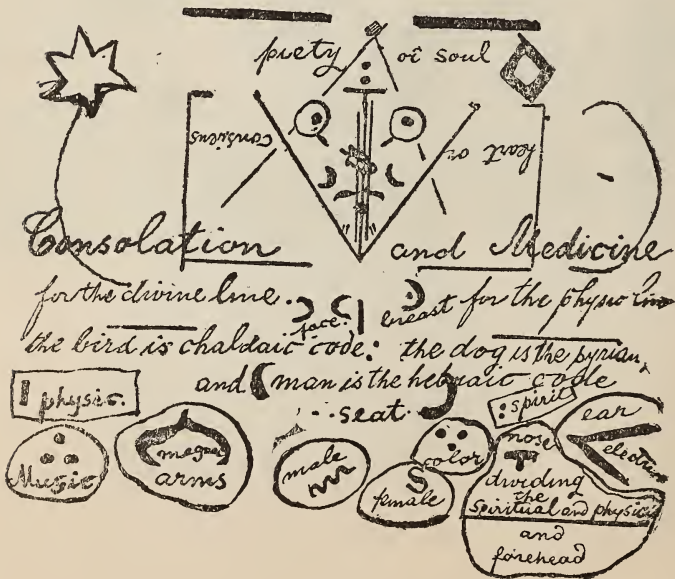 piety of soul
consists
heart or
Consolation and Medicine
for the divine line. breast for the physic line
face.
the bird is chaldaic code: the dog is the syrian,
and man is the hebraic code
physic. seat : spirit
Music
magnet
arms
male
female
color
nose
ear
electric
dividing
the
Spiritual and physic
and
forehead